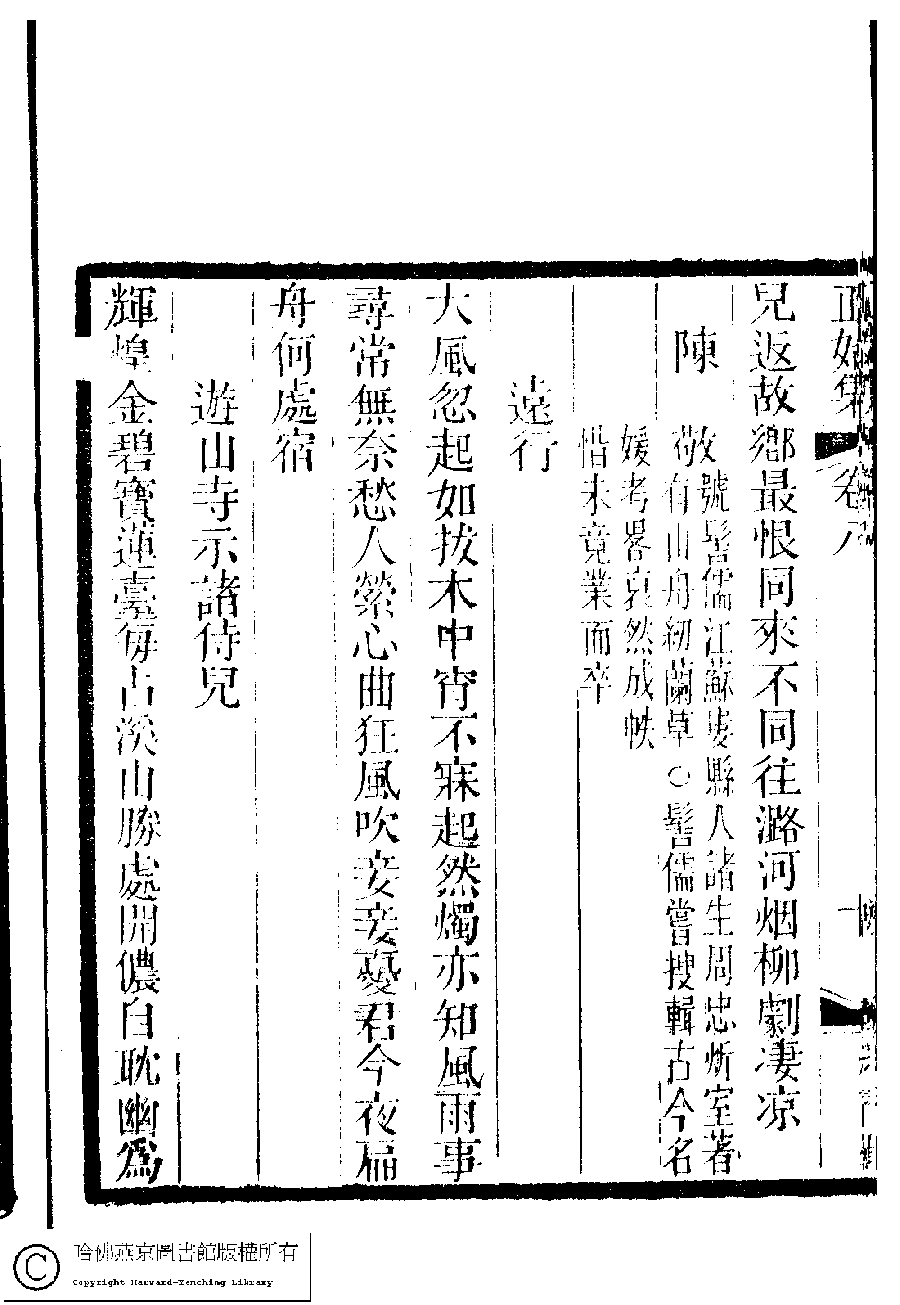 正始集 卷八
兒返故鄉最恨同來不同往潞河烟柳劇凄凉
陳敬
號髻儒江蘇婁縣人諸生周忠炘室著
有山舟紉蘭草○髻儒嘗搜輯古今名
媛考畧裒然成帙
惜未竟業而卒
遠行
大風忽起如拔木中宵不寐起然燭亦知風雨事
尋常無奈愁人縈心曲狂風吹妾妾憂君今夜扁
舟何處宿
遊山寺示諸侍兒
輝煌金碧寶蓮臺每占溪山勝處開儂自耽幽爲
哈佛燕京圖書館版權所有
Copyright Harvard-Yenching Library